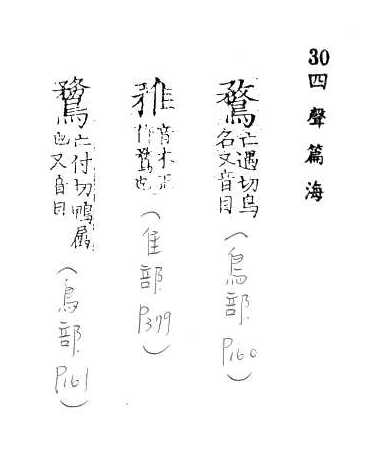 30四聲篇海
鶩
亡遇切鳥
名又音目
(鳥部P160)
音木正
作鶩也
(隹部P379)
鶩
亡付切鴨屬
也又音目
(鳥部P161)